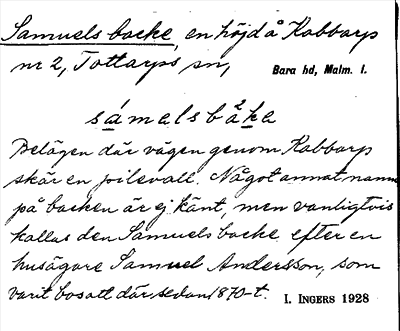 Samuels backe, en höjd å Kabbarp
nr 2, Tottarps sn, Bara hd, Malm. l.
sámelsbàkə
Belägen där vägen genom Kabbarp
skär en pilevall. Något annat namn
på backen är ej känt, men vanligtvis
kallas den Samuels backe efter en
husägare Samuel Andersson, som
varit bosatt där sedan 1870-t. I. INGERS 1928